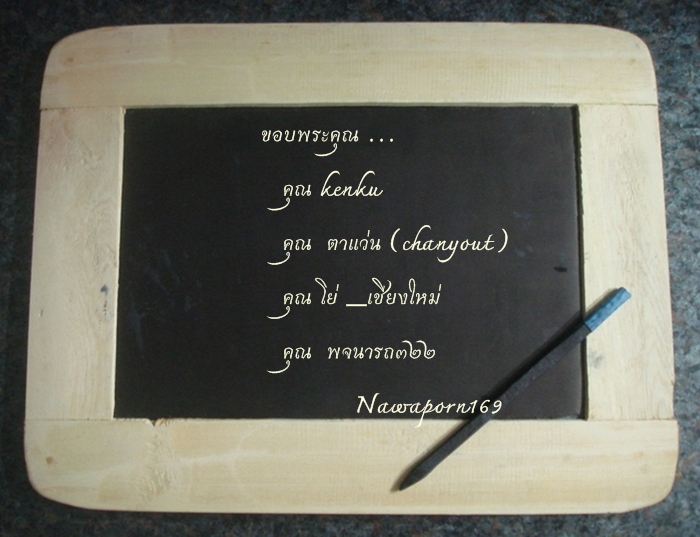 ขอบพระคุณ ...
คุณ kenku
คุณ ตาแว่น (chanyout)
คุณ โย่ _เชียงใหม่
คุณ พจนารถ๓๒๒
Nawaporn169